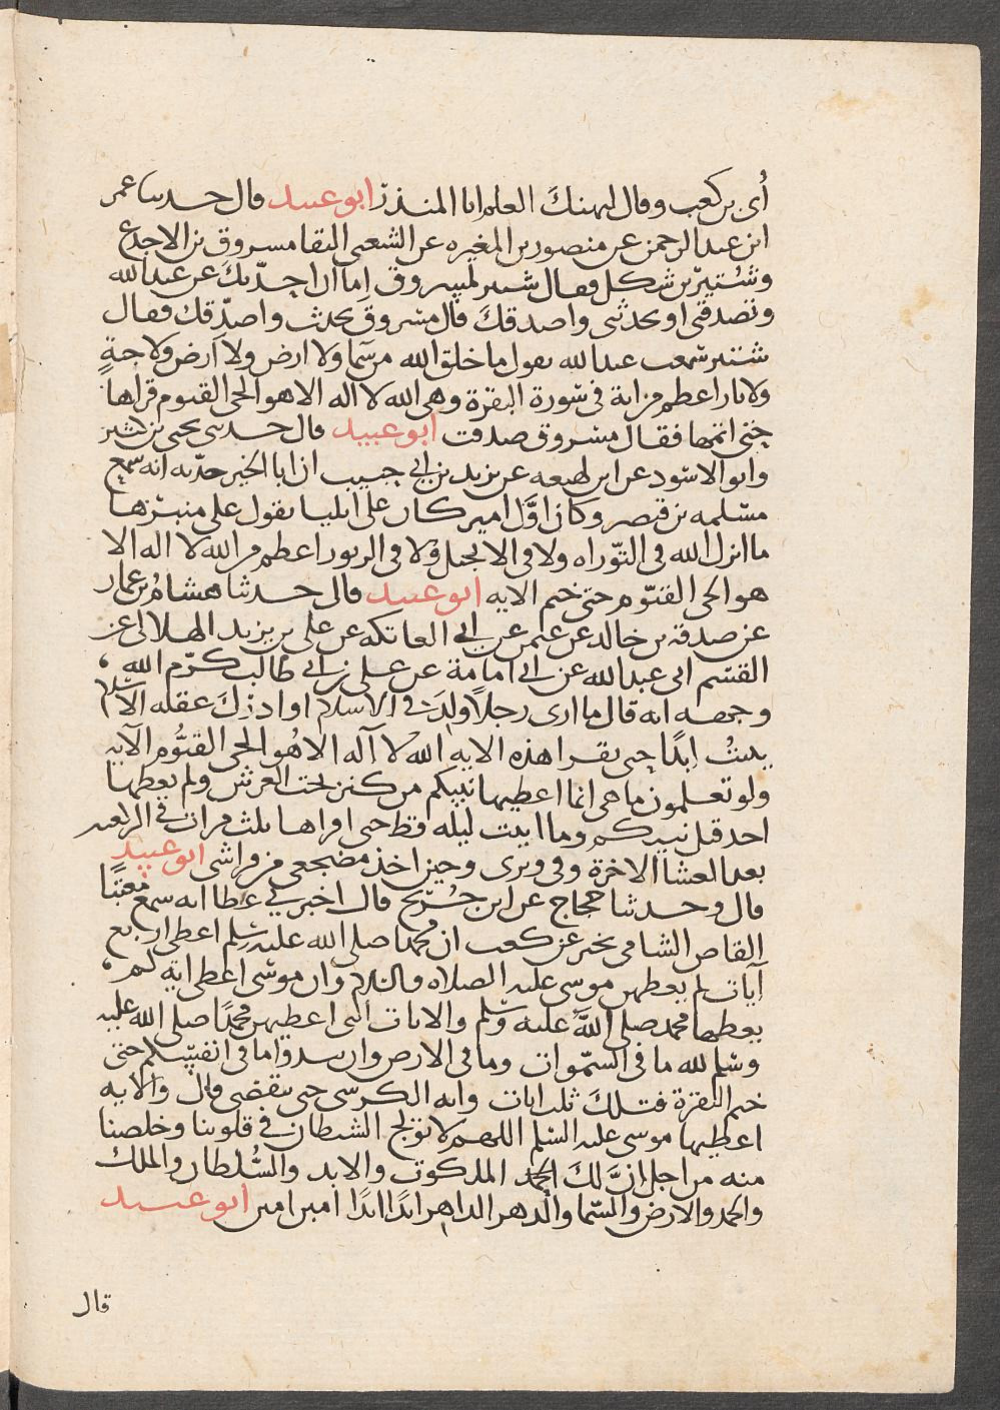 أبى بن كعب وقال ليهنك العلم ابا المنذر ابو عبيد قال حدثنا عمر
ابن عبد الرحمن عن منصور بن المغيره عن الشعبى التقا مسروق بن الاجدع
وشتير بن شكل فقال شتير لمسروق اما ان احدثك عن عبد الله
وتصدقنى او تحدثنى واصدقك قال مسروق تحدث واصدقك فقال
شتير سمعت عبد الله يقول ما خلق الله من سما ولا ارض ولا ارض ولا جنة
ولا نار اعظم من اية فى سورة البقرة وهى الله لا اله الا هو الحى القيوم قراها
حتى اتمها فقال مسروق صدقت ابو عبيد قال حدثنى يحيى بن بكير
وابو الاسود عن ابن لهيعه عن يزيد بن ابى حبيب ان ابا الخير حدثه انه سمع
مسلمه بن قيصر وكان اول امير كان على ايليا يقول على منبرها
ما انزل الله فى التوراه ولا فى الانجيل ولا فى الزبور اعظم من الله لا اله الا
هو الحى القيوم حتى ختم الايه ابو عبيد قال حدثنا هشام بن عمار
عن صدقه بن خالد عن عثمن عن ابى العاتكه عن على بن يزيد الهلالى عن
القسم ابى عبد الله عن ابى امامة عن على بن ابى طالب كرم الله
وجهه انه قال ما ارى رجلا ولد فى الاسلام او ادرك عقله الاسلام
يبيت ابدا حتى يقرا هذه الايه الله لا اله الا هو الحى القيوم الآيه
ولو تعلمون ما هى انما اعطيها نبيكم من كنز تحت العرش ولم يعطها
احد قبل نبيكم وما ابيت ليله قط حتى اقراها ثلث مرات فى الركعتين
بعد العشا الاخرة وفى وترى وحين اخذ مضجعى من فراشى ابو عبيد
قال وحدثنا حجاج عن ابن جريج قال اخبرنى عطا انه سمع مغيثا
القاص الشامى يخبر عن كعب ان محمدا صلى الله عليه وسلم اعطى اربع
آيات لم يعطهن موسى عليه الصلاه والسلام وان موسى اعطى اية لم
يعطها محمد صلى الله عليه وسلم والايات التى اعطيهن محمدا صلى الله عليه
وسلم لله ما فى السموات وما فى الارض وان تبدوا ما فى انفسكم حتى
ختم البقرة فتلك ثلث ايات وايه الكرسى حتى تنقضى قال والايه
اعطيها موسى عليه السلم اللهم لا تولج الشيطان فى قلوبنا وخلصنا
منه من اجل ان لك الحمد الملكوت والابد والسلطان والملك
والحمد والارض والسما والدهر الداهر ابدا ابدا امين امين ابو عبيد
قال